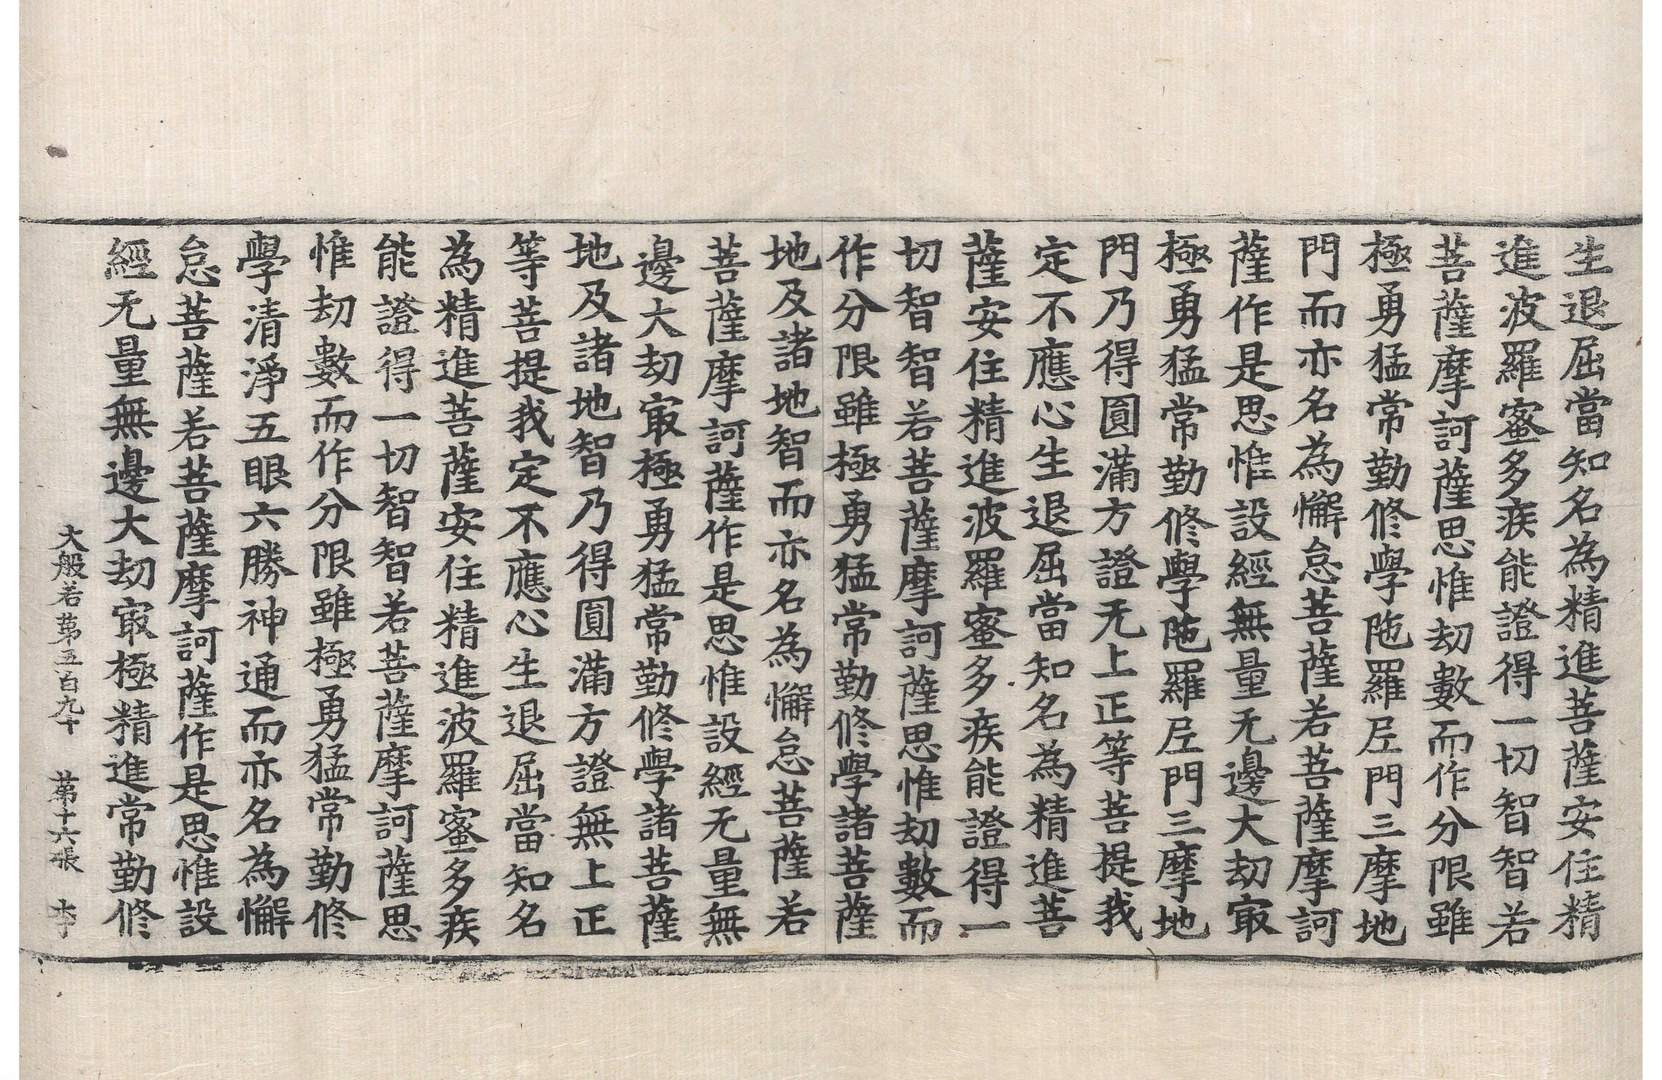 生退屈當知名為精進菩薩安住精
進波羅蜜多疾能證得一切智智若
菩薩摩訶薩思惟劫數而作分限雖
極勇猛常勤修學陁羅尼門三摩地
門而亦名為懈怠菩薩若菩薩摩訶
薩作是思惟設經無量无邊大劫冣
極勇猛常勤修學陁羅尼門三摩地
門乃得圓滿方證无上正等菩提我
定不應心生退屈當知名為精進菩
薩安住精進波羅蜜多疾能證得一
切智智若菩薩摩訶薩思惟劫數而
作分限雖極勇猛常勤修學諸菩薩
地及諸地智而亦名為懈怠菩薩若
菩薩摩訶薩作是思惟設經无量無
邊大劫冣極勇猛常勤修學諸菩薩
地及諸地智乃得圓滿方證無上正
等菩提我定不應心生退屈當知名
為精進菩薩安住精進波羅蜜多疾
能證得一切智智若菩薩摩訶薩思
惟劫數而作分限雖極勇猛常勤修
學清淨五眼六勝神通而亦名為懈
怠菩薩若菩薩摩訶薩作是思惟設
經无量無邊大劫冣極精進常勤修
大般若第五百九十 第十六張 李